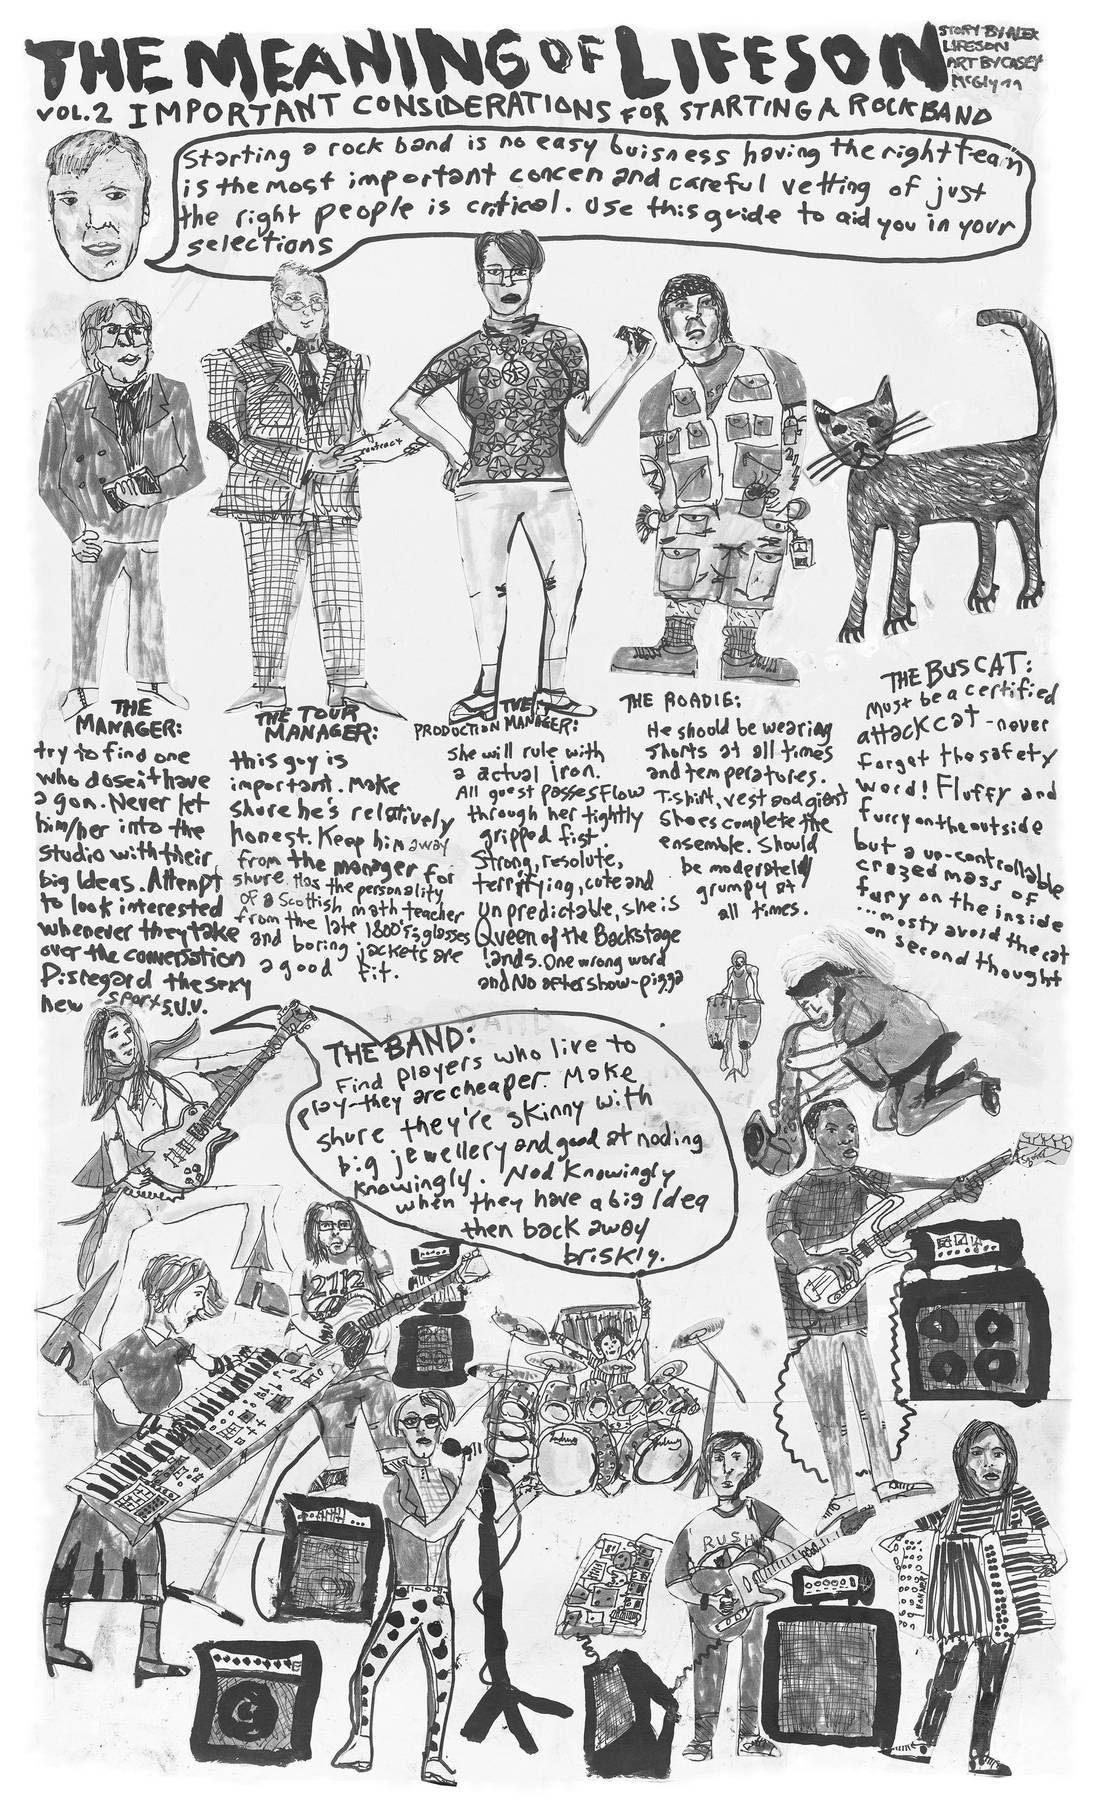 THE MEANING OF LIFESON
STORY BY ALEX
LIFESON
ART BY CASEY
McGlynn
VOL.2 IMPORTANT CONSIDERATIONS FOR STARTING A ROCK BAND
Starting a rock band is no easy buisness having the right team
is the most important concen and careful vetting of just
the right people is critical. Use this guide to aid you in your
selections
contract
THE
MANAGER:
try to find one
who doseit have
a gon. Never let
him/her into the
studio with their
big Ideas. Attempt
to look interested
whenever they take
over the conversation
Disregard the sexy
new sport S.U.V.
THE TOUR
MANAGER:
this guy is
important. Make
shure he's relatively
honest. Keep him away
from the manager for
shure. Has the personality
of a Scottish math teacher
from the late 1800's, glasses
and boring jackets are
a good fit.
PRODUCTION MANAGER:
She will rule with
a actual iron.
All guest passes flow
through her tightly
gripped fist.
Strong, resolute,
terrifying, cute and
unpredictable, she is
Queen of the Backstage
lands. One wrong word
and No aftershow-pizza
THE ROADIE:
He should be wearing
shorts at all times
and temperatures.
T-shirt, vest and giant
Shoes complete the
ensemble. Should
be moderately
grumpy at
all times.
THE BUS CAT:
Must be a certified
attack cat - never
forget tho safety
word! Fluffy and
furry on the outside
but a un-controllable
crazed mass of
fury on the inside
...mosty avoid the cat
on second thought
THE BAND:
Find players who live to
play-they are cheaper. Make
shure they're skinny with
big jewellery and good at noding
knowingly. Nod Knowingly
when they have a big Idea
then back away
briskly.
2112
Ludwig
Ludwig
RUSH